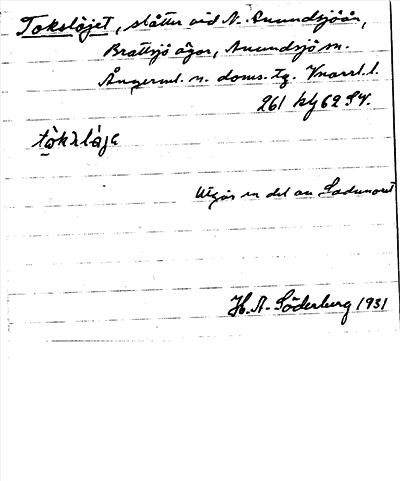 Tokslöjet, slåtter vid N. Anundsjöån,
Brattsjö ägor, Anundsjö sn.
Ångerml. n. doms. tg. Vnorrl. l.
261 kly 62 SV.
Utgör en del av Ladumoret
H. A. Söderberg 1931